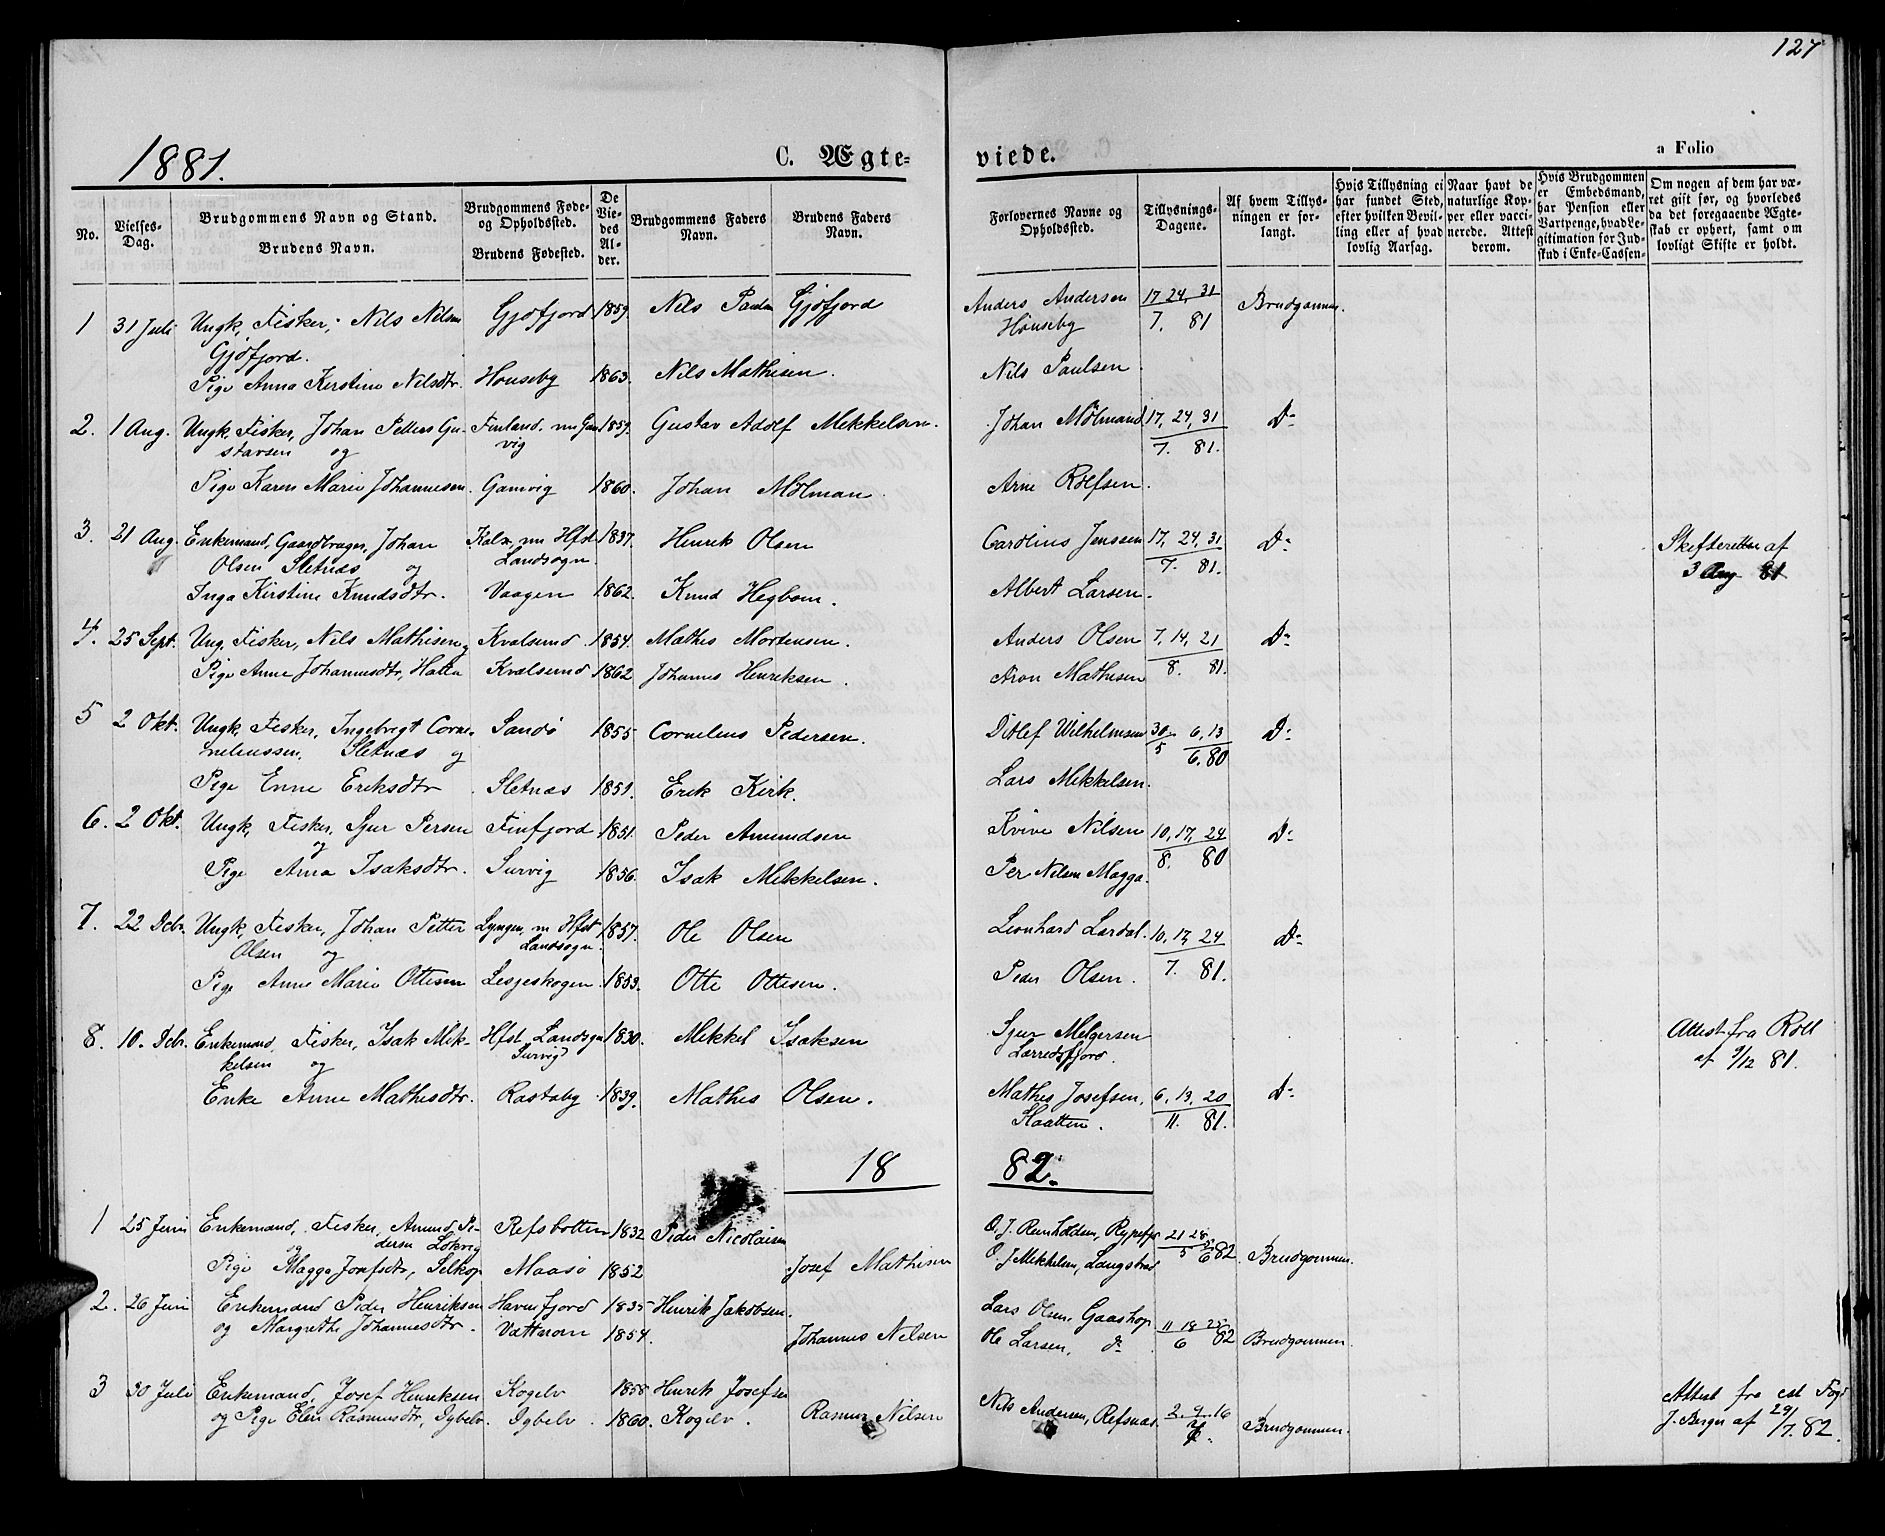 127
1881.
C. Ægte-
viede.
a Folio
No.
Vielses-Dag.
Brudgommens Navn og Stand.
Brudens Navn.
Brudgommens Føde- og Opholdssted.
Brudens Fødested.
De Viedes Alder.
Brudgommens Faders Navn.
Brudens Faders Navn.
Forlovernes Navne og Opholdssted.
Tillysnings-Dagene.
Af hvem Tillysningen er forlangt.
Hvis Tillysning ei har fundet Sted, efter hvilken Bevilling eller af hvad lovlig Aarsag.
Naar havt de naturlige Kopper eller vaccinerede. Attest derom.
Hvis Brudgommen er Embedsmand, har Pension eller Vartpenge, hvad Legitimation for Indskud i Enke-Cassen-
Om nogen af dem har været gift før, og hvorledes da det foregaaende Ægteskab er ophørt, samt om lovligt Skifte er holdt.
1 31 Juli Ungk, Fisker, Nils Nilsen Gjøfjord 1859. Nils Paulsen Gjøfjord Anders Andersen 17 24, 31 Brudgommen.
Gjøfjord. Hønseby 7. 81
Pige Anna Kirstine Nilsdtr. Hønseby 1863. Nils Mathisen. Nils Paulsen
2. 1 Aug. Ungk, Fisker, Johan Petters Gu- Finland. nu Gam 1859. Gustav Adolf Mikkelsen. Johan Mølmand 17, 24, 31 Do
stavsen og vig 7. 81.
Pige Karen Marie Johannesen. Gamvig 1860. Johan Mølman. Arne Rolfsen.
3. 21 Aug. Enkemand, Gaardbruger, Johan Kalix, nu Hfst 1837. Henrik Olsen Carolius Jenssen 17, 24, 31 Do Skifteretten af
Olsen Sletnæs og Landsogn. 7. 81. 3 Aug 81
Inga Kirstine Knudsdtr. Vaagen 1862. Knud Hegbom. Albert Larsen.
4. 25 Sept. Ung, Fisker, Nils Mathisen og Kvalsund. 1854. Mathis Mortensen. Anders Olsen 7, 14, 21 Do
Pige Anne Johannesdtr, Hatten Kvalsund 1862 Johannes Henriksen. Aron Mathisen 8. 81.
5 2 Okt. Ungk, Fisker, Ingebrigt Corne- Sandø 1855 Cornelius Pedersen. Ditlef Wilhelmsen 30 6, 13 Do
lneliussen, Sletnæs og 5 6. 80
Pige Enne Eriksdtr Sletnæs 1851. Erik Kirk. Lars Mikkelsen.
6. 2 Okt. Ungk, Fisker, Sjur Persen Finfjord 1851. Peder Amundsen Kvive Nilsen 10, 17, 24 Do
og 8. 80
Pige Anna Isaksdtr. Survig 1856. Isak Mikkelsen. Per Nilsen Magga.
7. 22 Dcbr. Ungk, Fisker, Johan Petter Lyngen, nu Hfst 1857. Ole Olsen Leonhard Lerdal. 10, 17, 24 Do
Olsen og Landsogn. 7. 81.
Pige Anne Marie Ottesen Lesjeskogen. 1853. Otte Ottesen. Peder Olsen.
8. 10. Dcbr. Enkemand, Fisker, Isak Mik- Hfst Landsogn 1830. Mikkel Isaksen Sjur Melgersen Attest fra Roll
kelsen og Survig Lerredsfjord. af 9/12 81.
Enke Anne Mathisdtr. Rastaby 1839. Mathis Olsen. Mathis Josefsen, 6, 13, 20 Do
Slaatten. 11. 81.
18 82.
1 25 Juni Enkemand, Fisker, Amund Pe- Refsbotten 1832 Peder Nicolaisen O. J. Reinholdsen, Rypefj. 21 28
dersen Løkvig 5 6 82 Brudgommen.
og
Pige Magga Josefsdtr, Selkop Maasø 1852 Josef Mathisen O. J Mikkelsen, Langstrad
2. 26 Juni Enkemand Peder Henriksen Havnefjord 1835 Henrik Jakobsen. Lars Olsen Gaashop 11 18 25
og Margrethe Johannesdtr. Vattnom 1854. Johannes Nilsen Ole Larsen, do 6 82 Brudgommen.
3 30 Juli Enkemand, Josef Henriksen Kogelv 1858 Henrik Josefsen Nils Andersen, Refsnæs. 2 9 16 Attest fra
og Pige Elen Rasmusdtr, Dybelv. Dybelv. 1860. Kogelv. Rasmus Nilsen 7. Brudgommen. J. Berger af 29/7. 82.